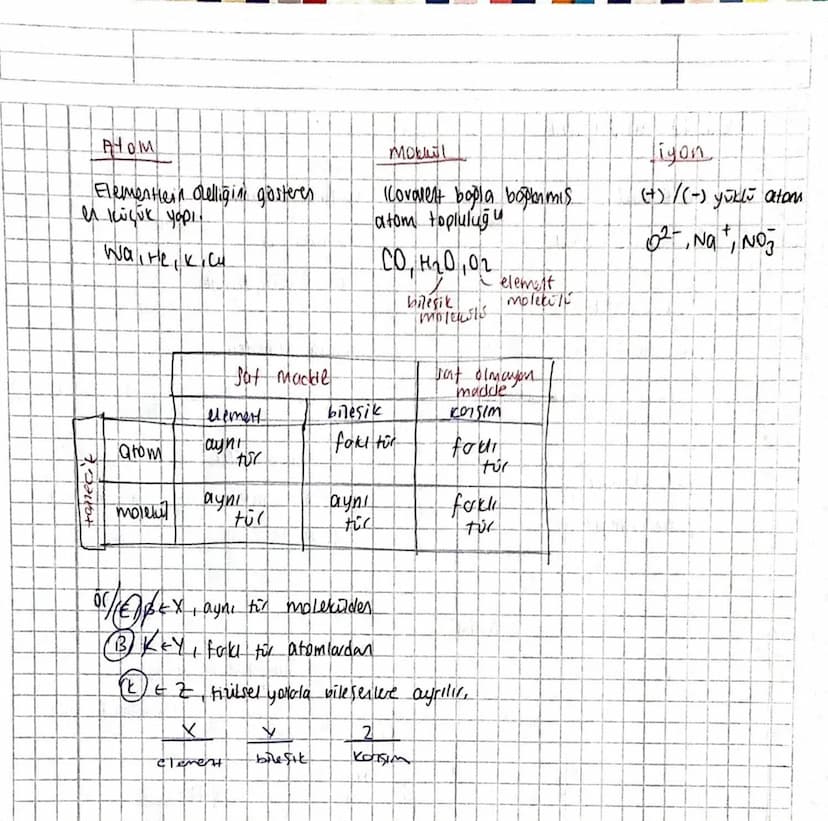 Atom
Elementlein özelliğini gösteren
en küçük yapı.
Na, He, K, Cu
Molekül
Kovalent bağla bağlanmış
atom topluluğu
CO, H₂O, O₂
bileşik
molekülü
element
molekülü
iyon
(+) / (-) yüklü atom
O²⁻, Na⁺, NO₃⁻
Saf madde
saf olmayan
madde
element bileşik karışım
tanecik
atom
aynı
tür
farklı tür
farklı
tür
molekül
aynı
tür
aynı
tür
farklı
tür
ör/ (E) B E X, aynı tür molekülden
(B) K E Y, farklı tür atomlardan
(K) E Z, fiziksel yolla bileşenlere ayrılır.
X Y Z
element bileşik karışım